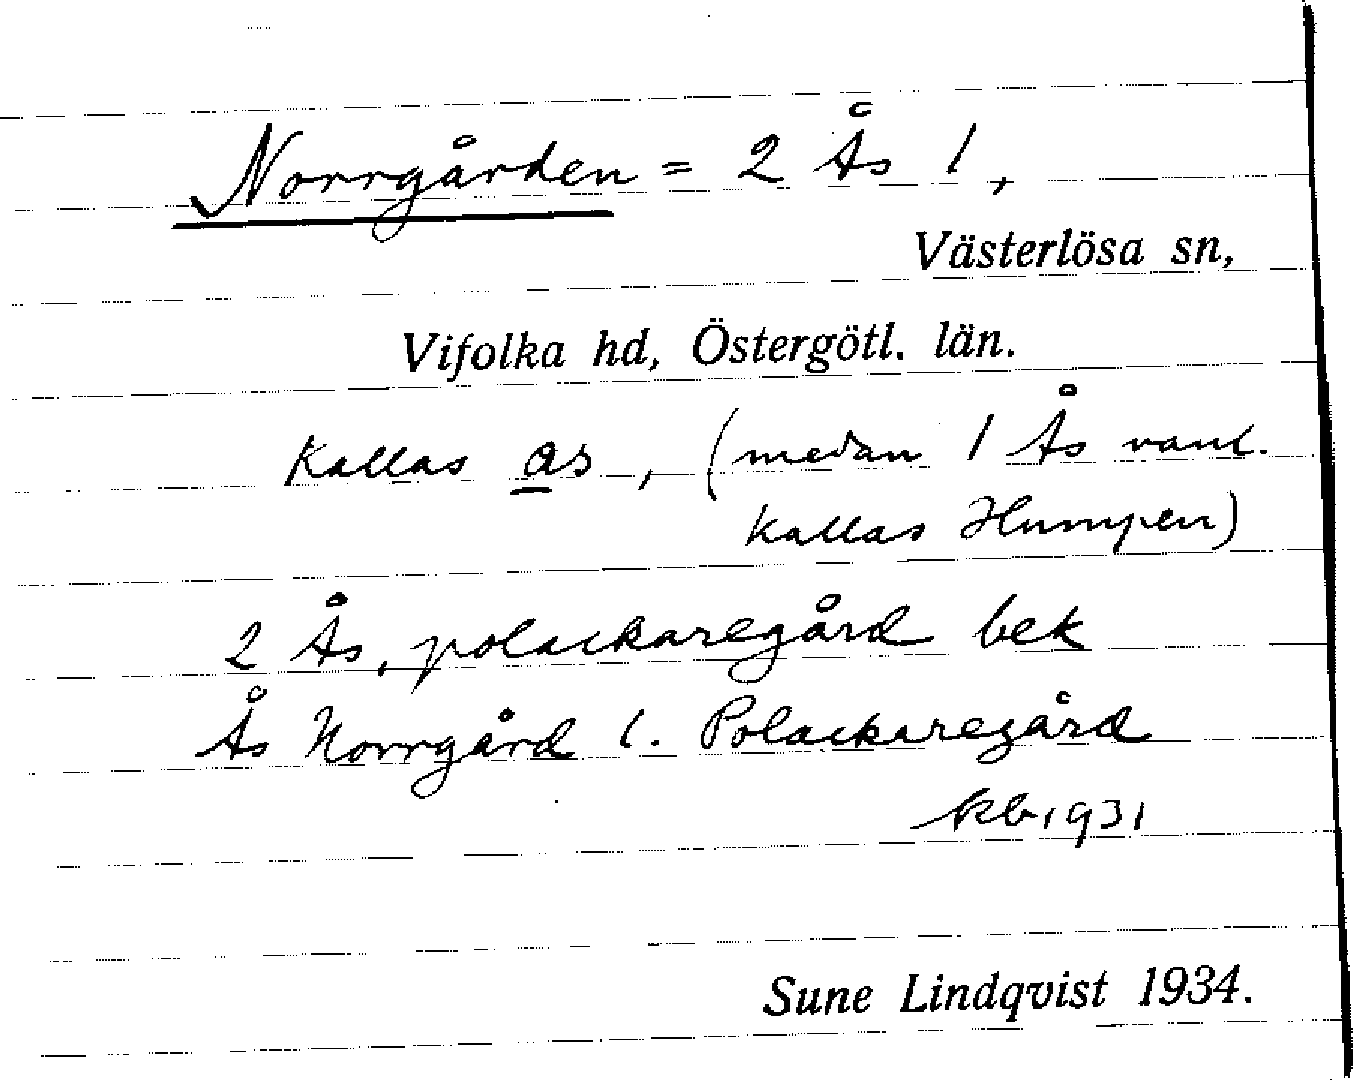 Norrgården = 2 Ås 1,
Västerlösa sn,
Vifolka hd, Östergötl. län.
Kallas as, (medan 1 Ås vanl.
kallas Humpen)
2 Ås, polackaregård bek
Ås Norrgård l. Polackaregård
kb 1931
Sune Lindqvist 1934.